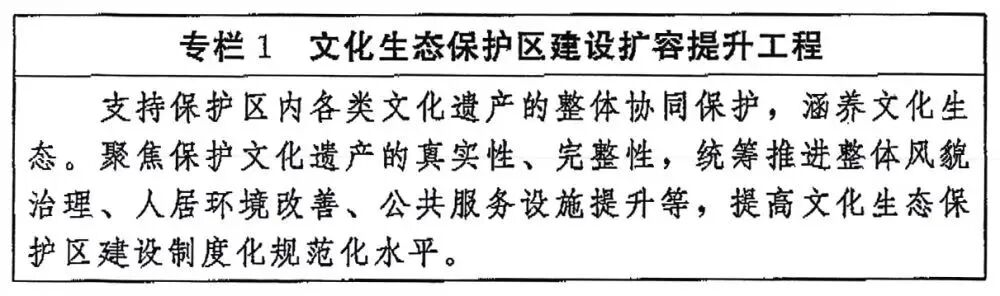 专栏1 文化生态保护区建设扩容提升工程
支持保护区内各类文化遗产的整体协同保护，涵养文化生
态。聚焦保护文化遗产的真实性、完整性，统筹推进整体风貌
治理、人居环境改善、公共服务设施提升等，提高文化生态保
护区建设制度化规范化水平。